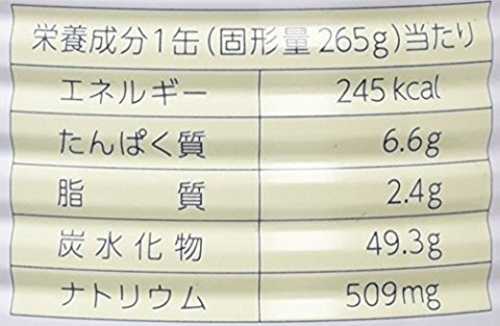 栄養成分1缶(固形量265g)当たり
エネルギー 245kcal
たんぱく質 6.6g
脂質 2.4g
炭水化物 49.3g
ナトリウム 509mg